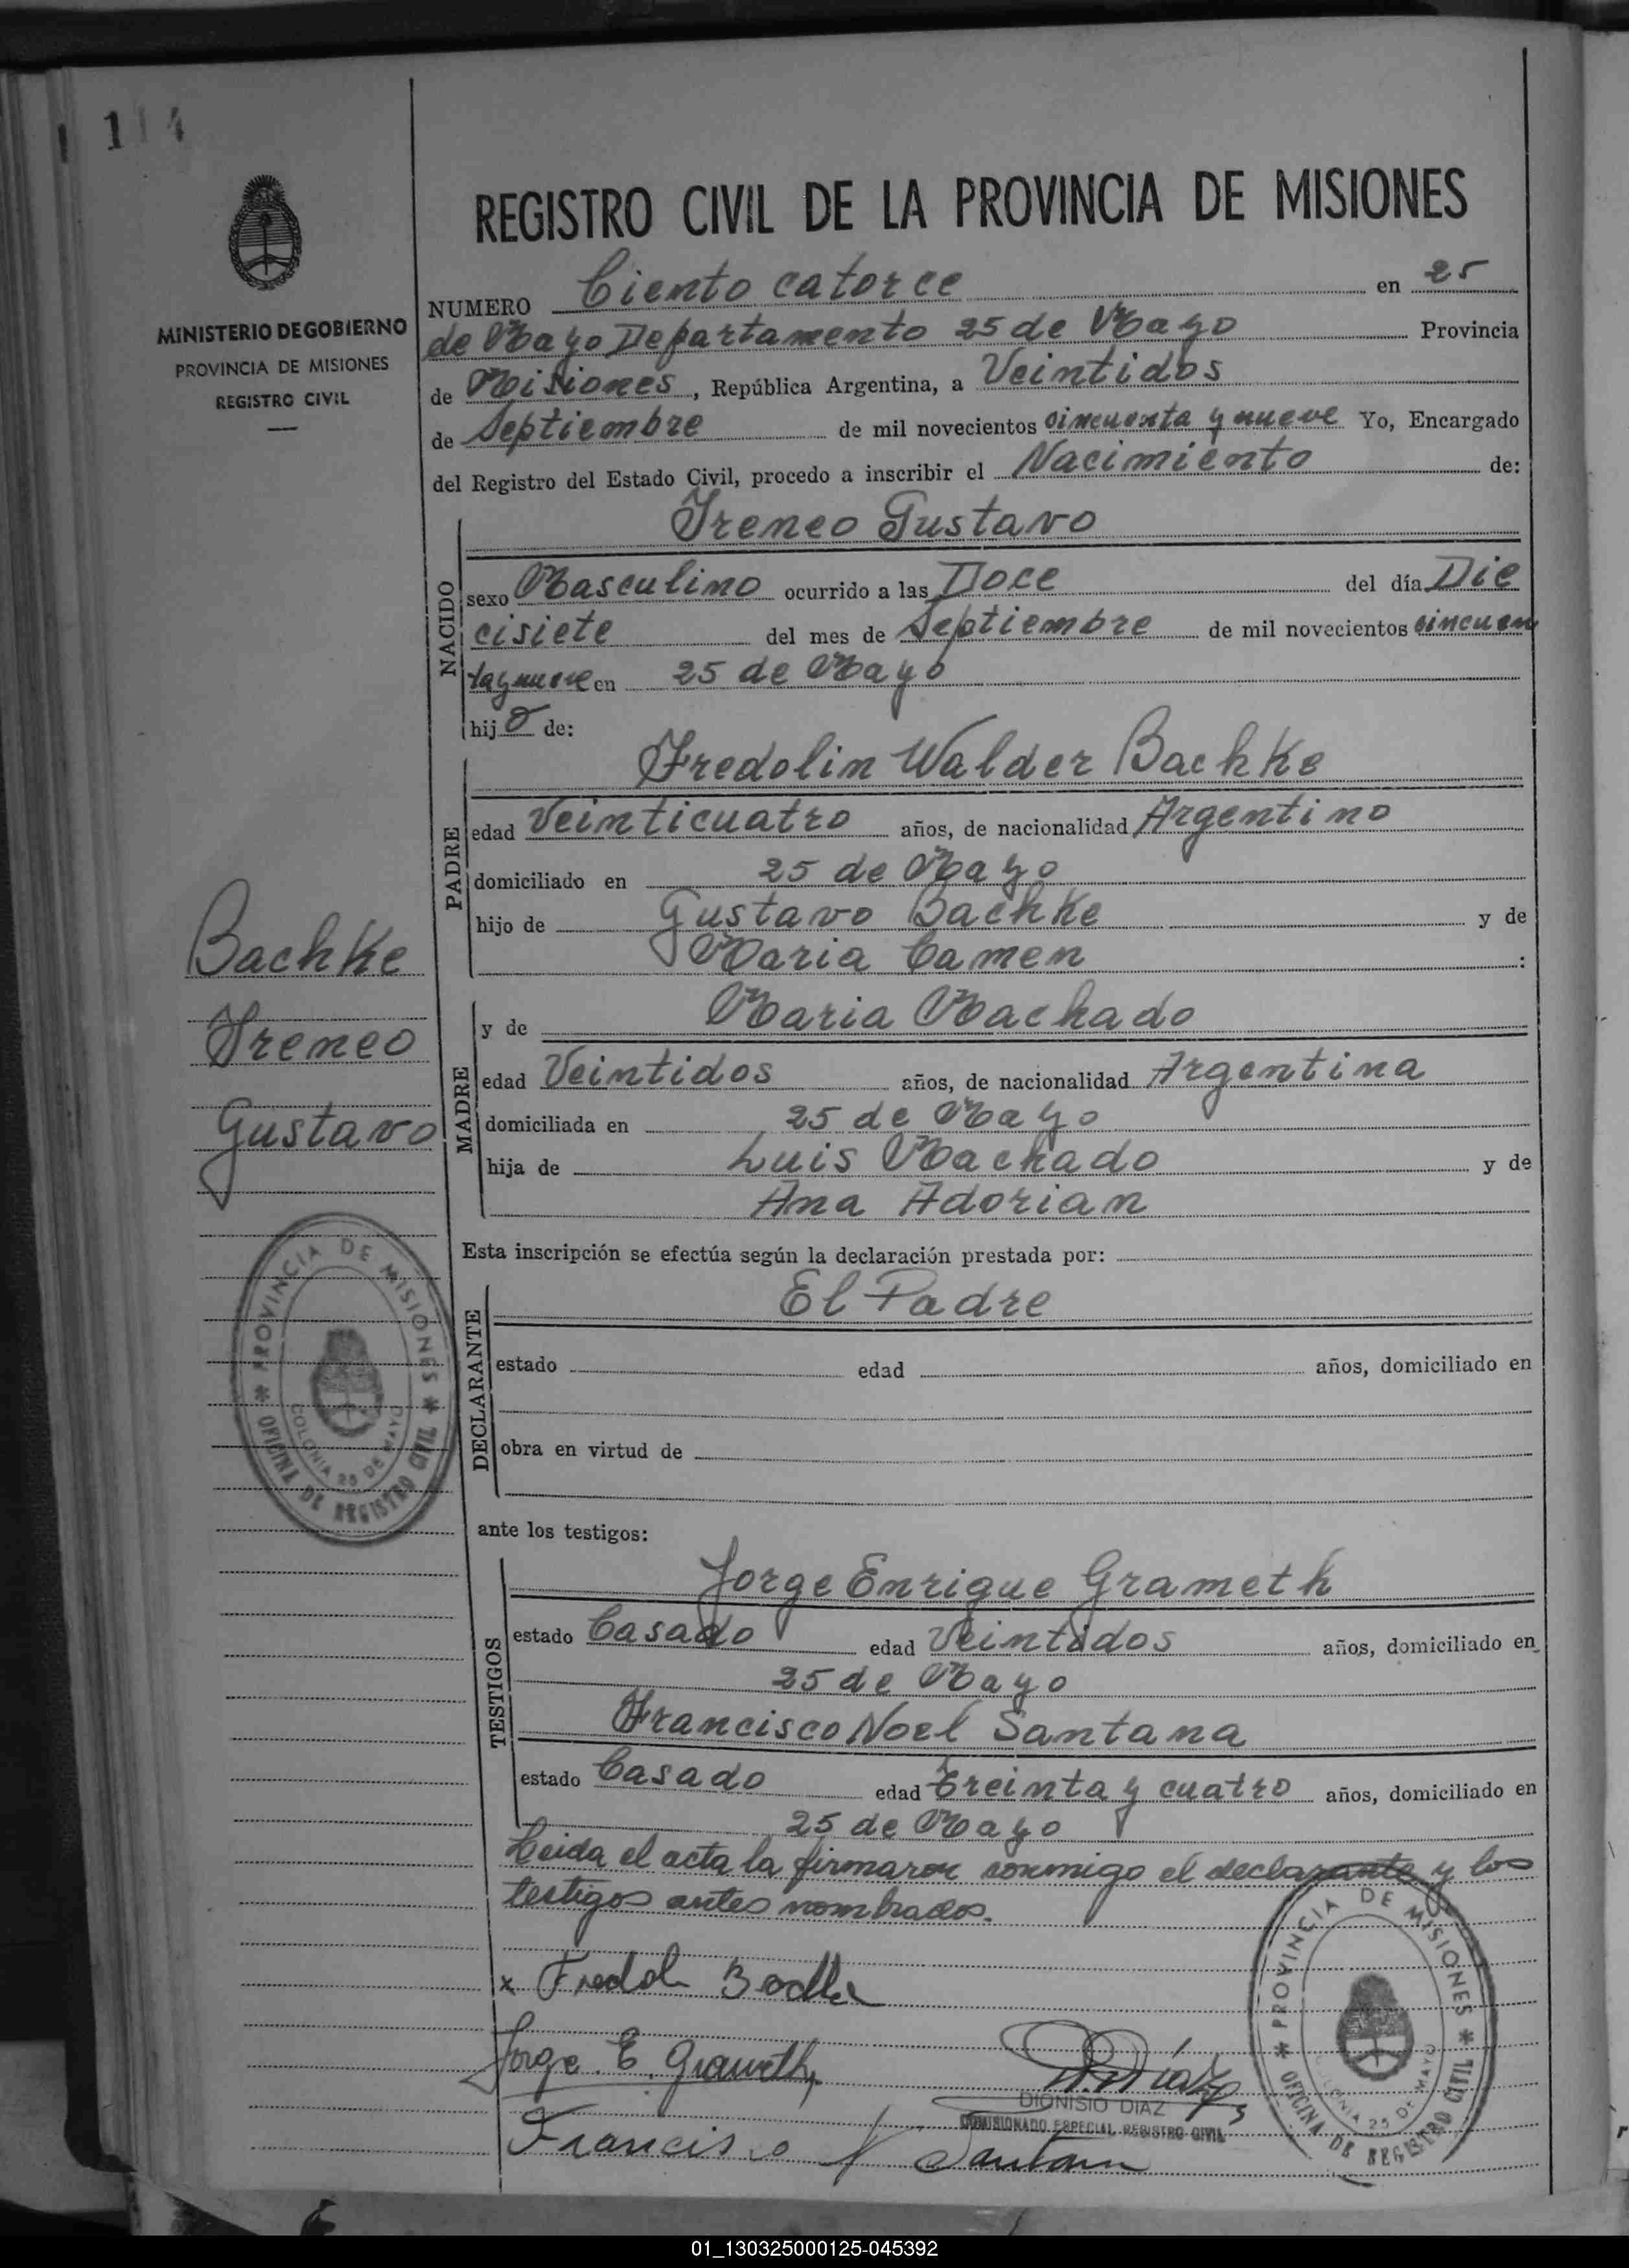 114
MINISTERIO DE GOBIERNO
PROVINCIA DE MISIONES
REGISTRO CIVIL
REGISTRO CIVIL DE LA PROVINCIA DE MISIONES
NUMERO Ciento catorce en 25
de Mayo Departamento 25 de Mayo Provincia
de Misiones, República Argentina, a Veintidos
de Septiembre de mil novecientos cincuenta y nueve Yo, Encargado
del Registro del Estado Civil, procedo a inscribir el Nacimiento de:
NACIDO
Ireneo Gustavo
sexo Masculino ocurrido a las Doce del día Die
cisiete del mes de Septiembre de mil novecientos cincuen
ta y nueve en 25 de Mayo
hijo de:
PADRE
Fredolin Walder Bachke
edad Veinticuatro años, de nacionalidad Argentino
domiciliado en 25 de Mayo
hijo de Gustavo Bachke y de
Maria Camen :
Bachke
Ireneo
Gustavo
MADRE
y de Maria Machado
edad Veintidos años, de nacionalidad Argentina
domiciliada en 25 de Mayo
hija de Luis Machado y de
Ana Adorian
Esta inscripción se efectúa según la declaración prestada por:
DECLARANTE
El Padre
estado edad años, domiciliado en
obra en virtud de
PROVINCIA DE MISIONES
COLONIA 25 DE MAYO
OFICINA DE REGISTRO CIVIL
ante los testigos:
TESTIGOS
Jorge Enrique Grameth
estado Casado edad Veintidos años, domiciliado en
25 de Mayo
Francisco Noel Santana
estado Casado edad Treinta y cuatro años, domiciliado en
25 de Mayo
Leida el acta la firmaron conmigo el declarante y los
testigos antes nombrados.
x Fredol
Jorge E. Grameth
D. Díaz
DIONISIO DIAZ
COMISIONADO ESPECIAL REGISTRO CIVIL
Francisco N Santana
PROVINCIA DE MISIONES
COLONIA 25 DE MAYO
OFICINA DE REGISTRO CIVIL
01_130325000125-045392